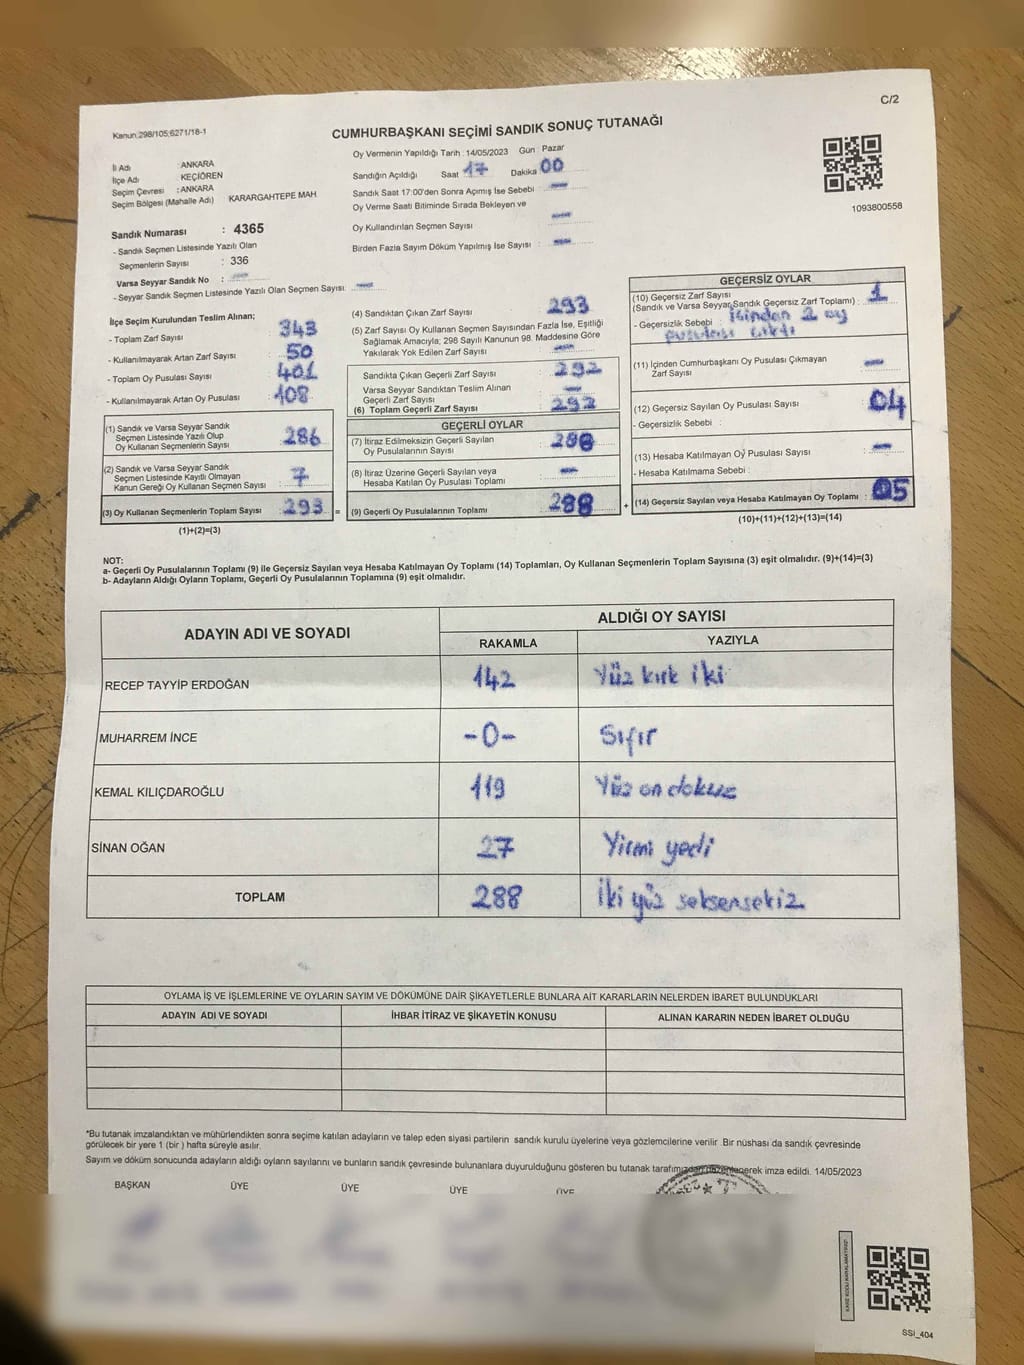 C/2
Kanun:298/105;6271/18-1
CUMHURBAŞKANI SEÇİMİ SANDIK SONUÇ TUTANAĞI
İl Adı : ANKARA
İlçe Adı : KEÇİÖREN
Seçim Çevresi : ANKARA
Seçim Bölgesi (Mahalle Adı) KARARGAHTEPE MAH
Sandık Numarası : 4365
- Sandık Seçmen Listesinde Yazılı Olan
Seçmenlerin Sayısı : 336
Varsa Seyyar Sandık No : —
- Seyyar Sandık Seçmen Listesinde Yazılı Olan Seçmen Sayısı: —
Oy Vermenin Yapıldığı Tarih :14/05/2023 Gün : Pazar
Sandığın Açıldığı Saat 17 Dakika 00
Sandık Saat 17:00'den Sonra Açımış İse Sebebi : —
Oy Verme Saati Bitiminde Sırada Bekleyen ve
Oy Kullandırılan Seçmen Sayısı : —
Birden Fazla Sayım Döküm Yapılmış İse Sayısı : —
1093800558
İlçe Seçim Kurulundan Teslim Alınan;
- Toplam Zarf Sayısı : 343
- Kullanılmayarak Artan Zarf Sayısı : 50
- Toplam Oy Pusulası Sayısı : 401
- Kullanılmayarak Artan Oy Pusulası : 108
(1) Sandık ve Varsa Seyyar Sandık
Seçmen Listesinde Yazılı Olup
Oy Kullanan Seçmenlerin Sayısı : 286
(2) Sandık ve Varsa Seyyar Sandık
Seçmen Listesinde Kayıtlı Olmayan
Kanun Gereği Oy Kullanan Seçmen Sayısı : 7
(3) Oy Kullanan Seçmenlerin Toplam Sayısı : 293
(1)+(2)=(3)
(4) Sandıktan Çıkan Zarf Sayısı : 293
(5) Zarf Sayısı Oy Kullanan Seçmen Sayısından Fazla İse, Eşitliği
Sağlamak Amacıyla; 298 Sayılı Kanunun 98. Maddesine Göre
Yakılarak Yok Edilen Zarf Sayısı : —
Sandıkta Çıkan Geçerli Zarf Sayısı : 292
Varsa Seyyar Sandıktan Teslim Alınan
Geçerli Zarf Sayısı : —
(6) Toplam Geçerli Zarf Sayısı : 292
GEÇERLİ OYLAR
(7) İtiraz Edilmeksizin Geçerli Sayılan
Oy Pusulalarının Sayısı : 288
(8) İtiraz Üzerine Geçerli Sayılan veya
Hesaba Katılan Oy Pusulası Toplamı : —
= (9) Geçerli Oy Pusulalarının Toplamı : 288
GEÇERSİZ OYLAR
(10) Geçersiz Zarf Sayısı
(Sandık ve Varsa Seyyar Sandık Geçersiz Zarf Toplamı) : 1
- Geçersizlik Sebebi : İçinden 2 oy
pusulası çıktı
(11) İçinden Cumhurbaşkanı Oy Pusulası Çıkmayan
Zarf Sayısı : —
(12) Geçersiz Sayılan Oy Pusulası Sayısı : 04
- Geçersizlik Sebebi :
(13) Hesaba Katılmayan Oy Pusulası Sayısı : —
- Hesaba Katılmama Sebebi :
+ (14) Geçersiz Sayılan veya Hesaba Katılmayan Oy Toplamı : 05
(10)+(11)+(12)+(13)=(14)
NOT:
a- Geçerli Oy Pusulalarının Toplamı (9) ile Geçersiz Sayılan veya Hesaba Katılmayan Oy Toplamı (14) Toplamları, Oy Kullanan Seçmenlerin Toplam Sayısına (3) eşit olmalıdır. (9)+(14)=(3)
b- Adayların Aldığı Oyların Toplamı, Geçerli Oy Pusulalarının Toplamına (9) eşit olmalıdır.
ADAYIN ADI VE SOYADI
ALDIĞI OY SAYISI
RAKAMLA YAZIYLA
RECEP TAYYİP ERDOĞAN 142 Yüz kırk iki
MUHARREM İNCE -0- Sıfır
KEMAL KILIÇDAROĞLU 119 Yüz on dokuz
SİNAN OĞAN 27 Yirmi yedi
TOPLAM 288 İki yüz seksensekiz
OYLAMA İŞ VE İŞLEMLERİNE VE OYLARIN SAYIM VE DÖKÜMÜNE DAİR ŞİKAYETLERLE BUNLARA AİT KARARLARIN NELERDEN İBARET BULUNDUKLARI
ADAYIN ADI VE SOYADI İHBAR İTİRAZ VE ŞİKAYETİN KONUSU ALINAN KARARIN NEDEN İBARET OLDUĞU
*Bu tutanak imzalandıktan ve mühürlendikten sonra seçime katılan adayların ve talep eden siyasi partilerin sandık kurulu üyelerine veya gözlemcilerine verilir .Bir nüshası da sandık çevresinde
görülecek bir yere 1 (bir ) hafta süreyle asılır.
Sayım ve döküm sonucunda adayların aldığı oyların sayılarını ve bunların sandık çevresinde bulunanlara duyurulduğunu gösteren bu tutanak tarafımızdan düzenlenerek imza edildi. 14/05/2023
BAŞKAN ÜYE ÜYE ÜYE ÜYE
KARE KODU KARALAMAYINIZ!
SSİ_404